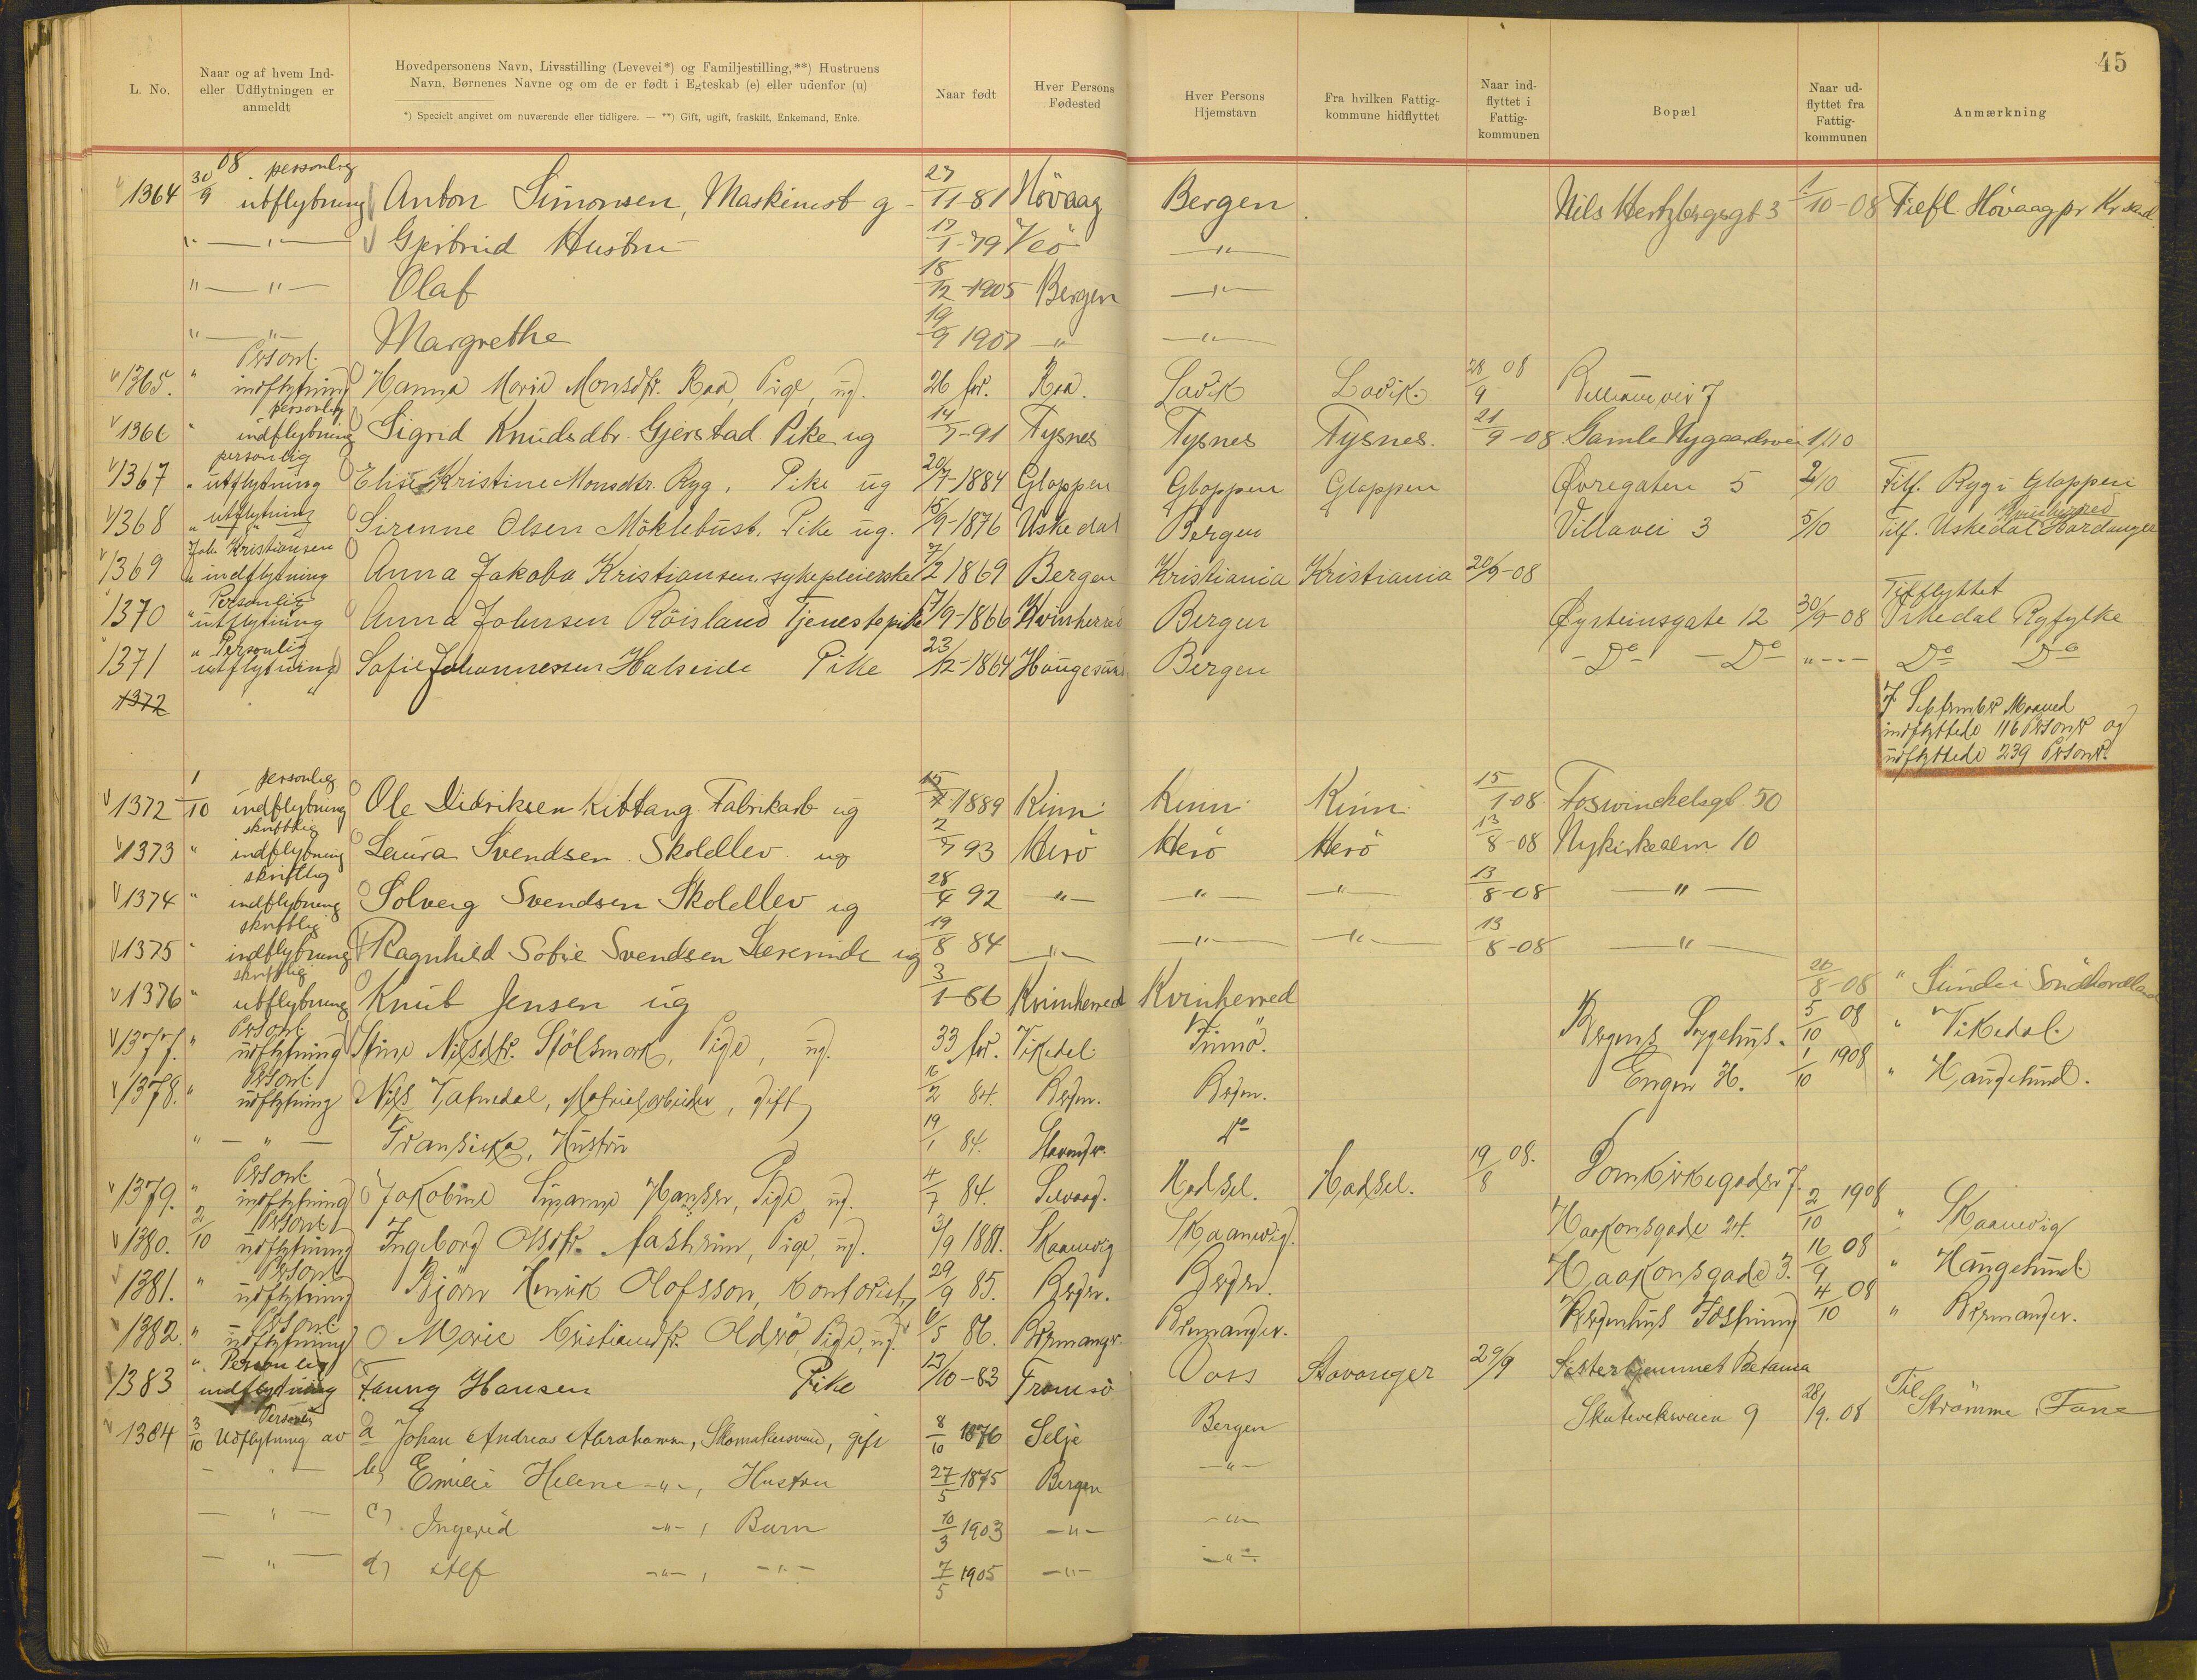 45
L. No. Naar og af hvem Ind- eller Udflytningen er anmeldt Hovedpersonens Navn, Livsstilling (Levevei*) og Familjestilling,**) Hustruens Navn, Børnenes Navne og om de er født i Egteskab (e) eller udenfor (u) Naar født Hver Persons Fødested Hver Persons Hjemstavn Fra hvilken Fattig- kommune hidflyttet Naar ind- flyttet i Fattig- kommunen Bopæl Naar ud- flyttet fra Fattig- kommunen Anmærkning
*) Specielt angivet om nuværende eller tidligere. — **) Gift, ugift, fraskilt, Enkemand, Enke.
1364 30/9 08. personlig utflytning Anton Simonsen, Maskinist g - 27/11-81 Hövaag Bergen Nils Hertzbergsgt 3 1/10-08 Høvaag pr Kr sand
" — " — Gjertrud Hustru 17/1-79 Veö — " —
" — " — Olaf 18/12-1905 Bergen — " —
" — " — Margrethe 19/9 1907 — " — " —
1365. " Personl. indflytning Hanna Marie Monsdtr. Raa, Pige, ug. 26 år. Raa. Lavik Lavik. 28/9 08
1366 " personlig indflytning Sigrid Knudsdtr. Gjerstad Pike ug 14/7-91 Tysnes Tysnes Tysnes. 21/9-08 Gamle Nygaardsvei 1/10
1367 " personlig utflytning Elise Kristine Monsdtr. Ryg, Pike ug 20/7-1884 Gloppen Gloppen Gloppen Øvregaten 5 2/10 Tilf. Ryg i Gloppen
1368 " utflytning Sirenne Olsen Möklebust. Pike ug. 15/9-1876 Uskedal Bergen Villavei 3 5/10 Tilf. Uskedal Hardanger
1369 " Joh. Kristiansen indflytning Anna Jakoba Kristiansen, sykepleierske 7/2 1869 Bergen Kristiania Kristiania 20/9-08
1370 " Personlig utflytning Anna Johnsen Röisland Tjenestepike 7/9-1866 Kvinherred Bergen Øysteinsgate 12 30/9-08 Tilflyttet Vikedal Ryfylke
1371 " Personlig utflytning Sofie Johannessen Halseide Pike 23/12-1864 Haugesund Bergen - Do - - Do - " - - - Do Do
1372
I September Maaned
indflyttede 116 Personer og
udflyttede 239 Personer.
1372 1/10 personlig indflytning Ole Didriksen Kittang Fabrikarb ug 15/7 1889 Kinn Kinn Kinn 15/1-08 Foswinckelsgt. 50
1373 " skriftlig indflytning Laura Svendsen. Skoleelev ug 2/7 93 Herö Herö Herö 13/8-08 Nykirkealm 10
1374 " skriftlig indflytning Solveig Svendsen Skoleelev ug 28/4 92 " — — " — — " — 13/8-08 — " —
1375 " skriftlig indflytning Ragnhild Sofie Svendsen Lærerinde ug 19/8 84 — " — — " — — " — 13/8-08 — " —
1376 " skriftlig utflytning Knut Jensen ug 3/1-86 Kvinherred Kvinherred 20/8-08 " Sunde i Söndhordland
1377. " Personl. udflytning Stine Nilsdtr. Stölsmark, Pige, ug. 33 år. Vikedal Bergens Sygehus. 5/10 08 " Vikedal.
1378. " Personl. udflytning Nils Vatnedal, gift 16/2 84. Bergen. Bergen. Engen H. 1/10 1908 " Haugesund.
" — " — Fransiska, Hustru 19/1 84. Stavanger. Do
1379. " Personl. indflytning Jakobine Susanne Hansen, Pige, ug. 4/7 84. Hadsel. Hadsel. 19/8 08. Domkirkegaden 7.
1380. 2/10 Personl. udflytning Ingeborg Olsdtr. Aasheim, Pige, ug. 3/9 1881. Skaanevig Skaanevig. Haakonsgade 24. 2/10 1908 " Skaanevig
1381. " Personl. udflytning Björn Henrik Olofsson, Kontorist, 29/9 85. Bergen. Bergen. Haakonsgade 3. 16/9 08 " Haugesund
1382. " Personl. udflytning Marie Kristiansdtr. Olderö, Pige, ug. 6/5 86. Bremanger. Bremanger. Bergenhus Fæstning 4/10 08 " Bremanger.
1383 " Personlig indflytning Fanny Hansen Pike 13/10-83 Tromsö Voss Stavanger 29/9 Sösterhjemmet Betania
1384 3/10 Personlig Udflytning av a Johan Andreas Abrahamsen, Skomakersvend, gift 8/10 1876 Selje Bergen Skuteviksveien 9 28/9. 08 Til Strömme, Fane
— " — b) Emilie Helene - " -, Hustru 27/5 1875 Bergen — " —
— " — c) Ingerid - " - , Barn 10/3 1903 — " — — " —
— " — d) Alf - " - , - " - 7/5 1905 — " — — " —